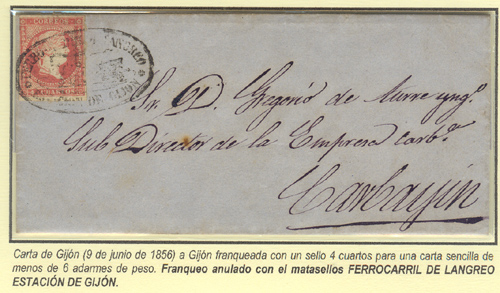 CORREOS
Sr. D. Gregorio de Murreyngo.
Sub Director de la Empresa carb.ª
Carbayin
Carta de Gijón (9 de junio de 1856) a Gijón franqueada con un sello 4 cuartos para una carta sencilla de
menos de 6 adarmes de peso. Franqueo anulado con el matasellos FERROCARRIL DE LANGREO
ESTACIÓN DE GIJÓN.